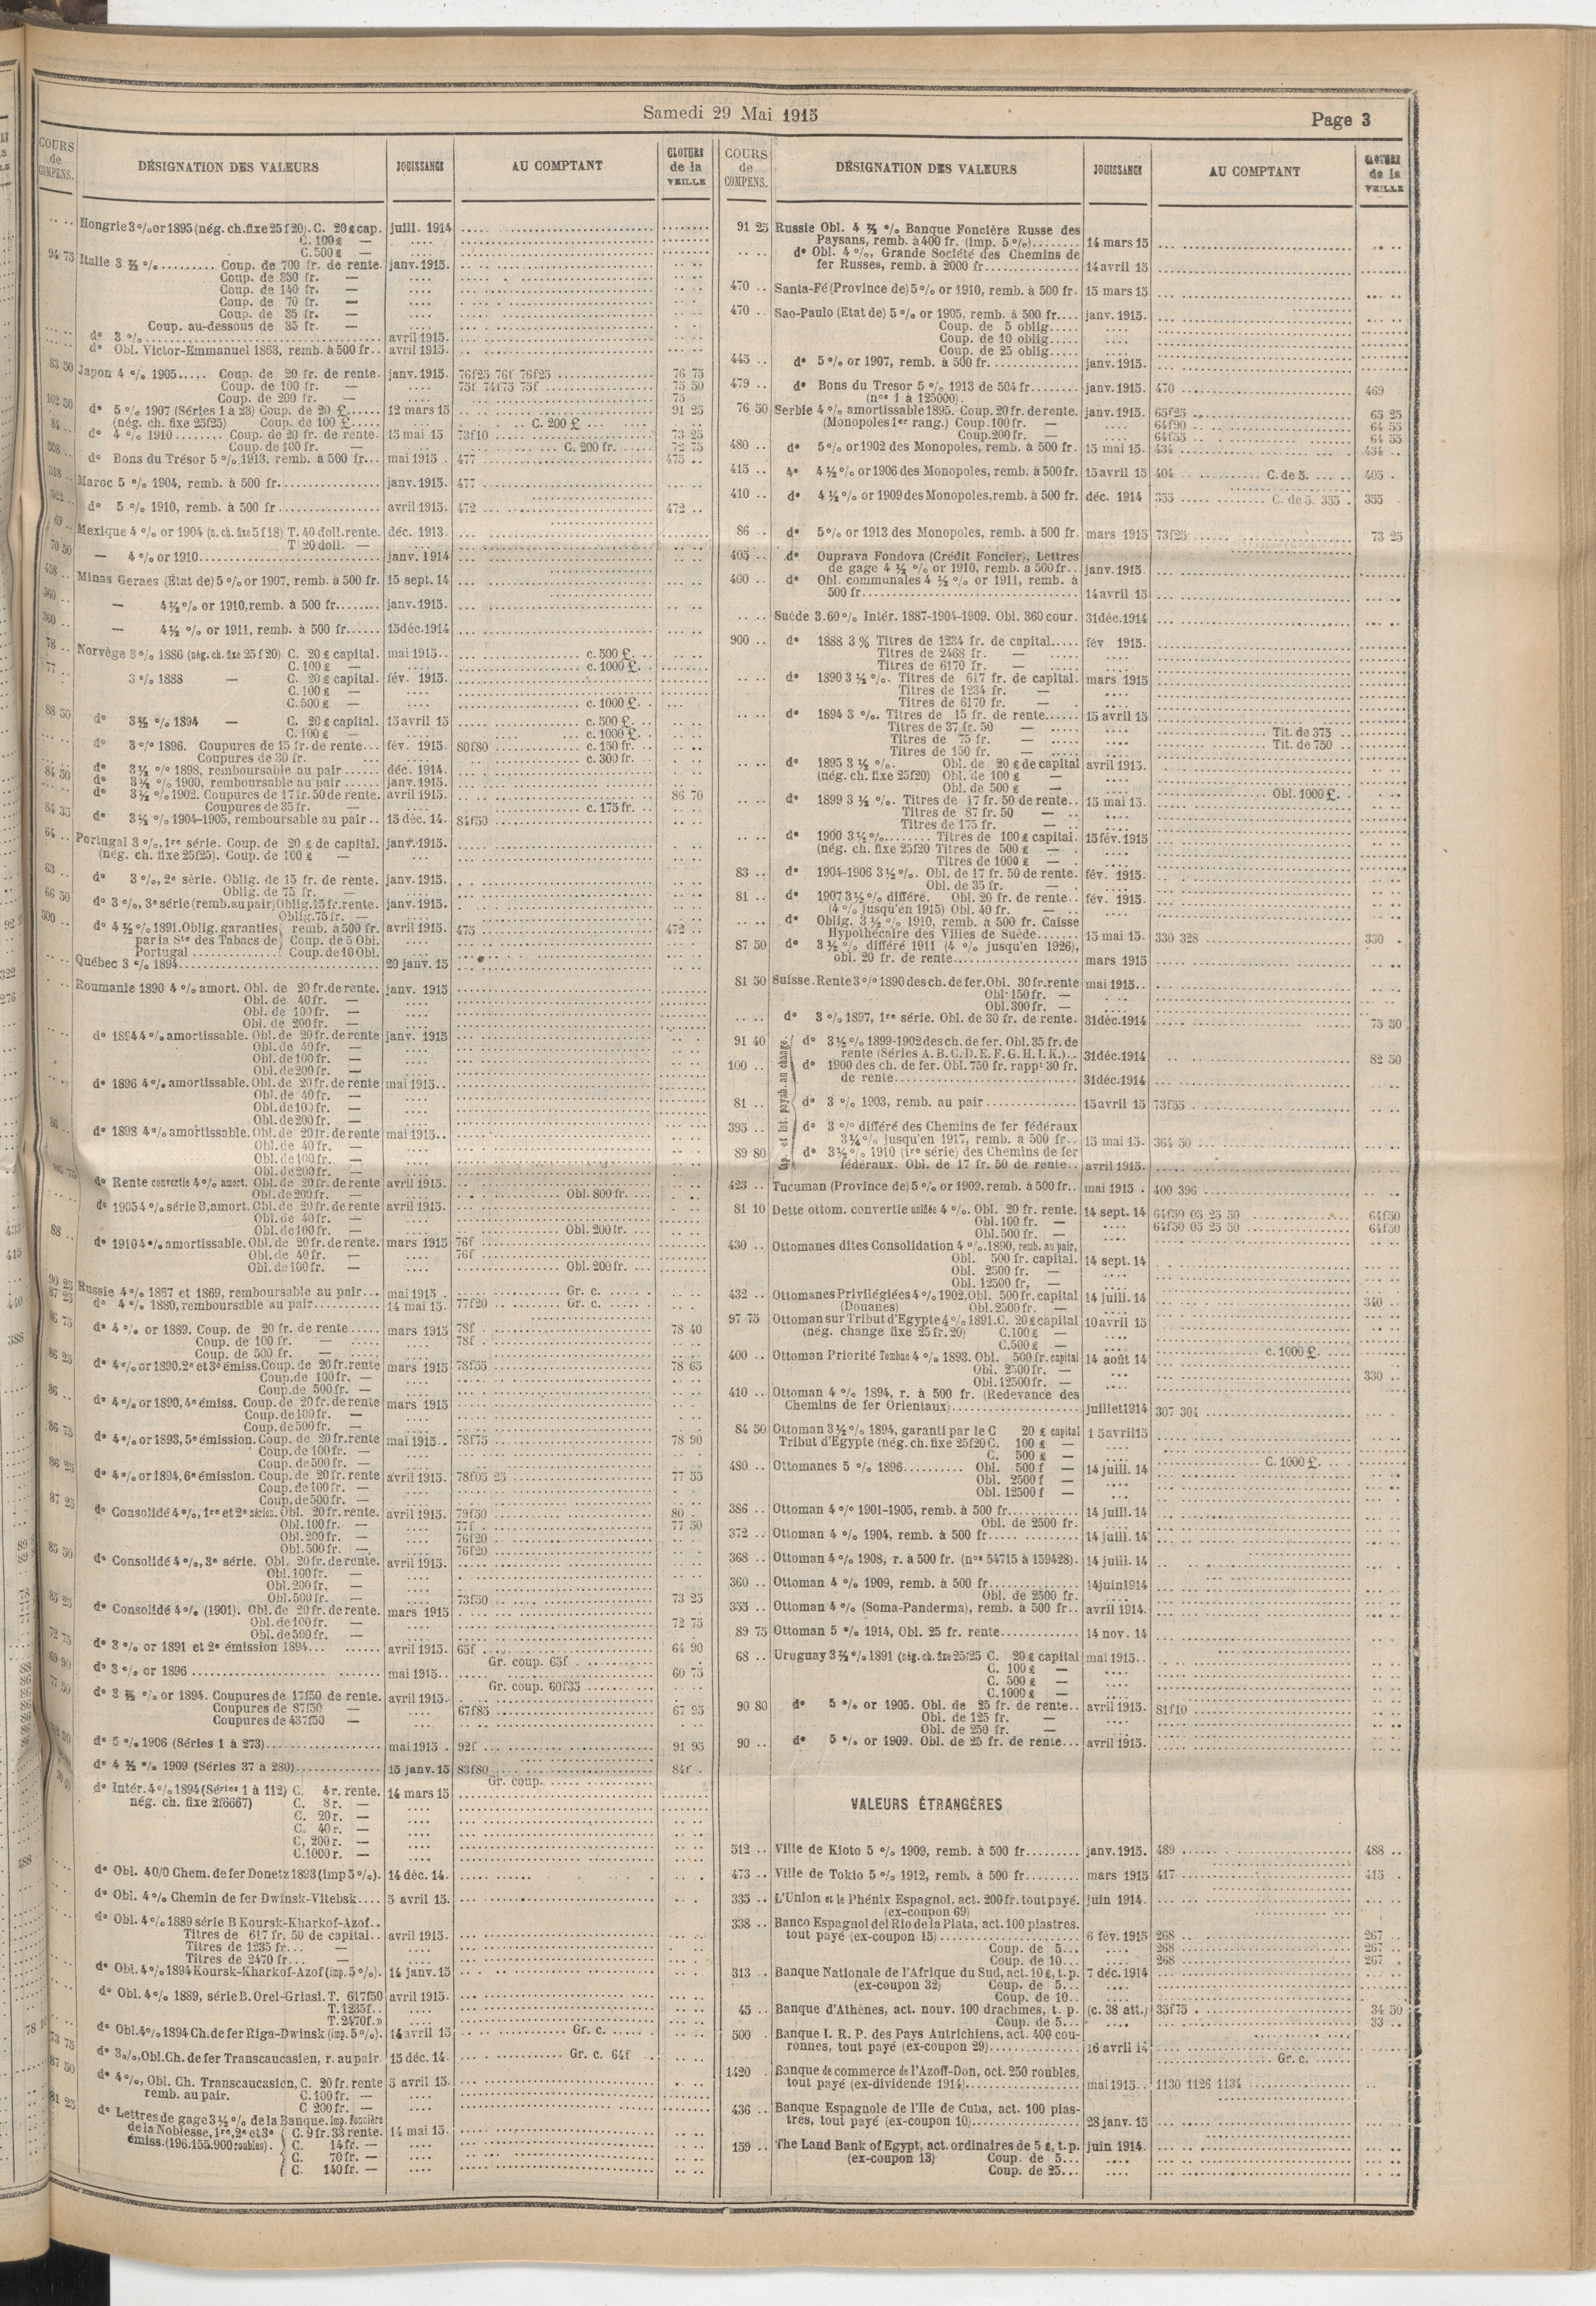 Samedi 29 Mai 1915
Page 3
COURS de COMPENS.
DÉSIGNATION DES VALEURS
JOUISSANCE
AU COMPTANT
CLOTURE de la VEILLE
Hongrie 3 % or 1895 (nég. ch. fixe 25 f 20). C. 20 £ cap. juill. 1914
C. 100 £ —
C. 500 £ —
94 75 Italie 3 ½ % ......... Coup. de 700 fr. de rente. janv. 1915.
Coup. de 350 fr. —
Coup. de 140 fr. —
Coup. de 70 fr. —
Coup. de 35 fr. —
Coup. au-dessous de 35 fr. —
do 3 % ........ avril 1915.
do Obl. Victor-Emmanuel 1863, remb. à 500 fr.. avril 1915.
83 50 Japon 4 % 1905..... Coup. de 20 fr. de rente. janv. 1915. 76f25 76f 76f25 76 75
Coup. de 100 fr. — 75f 74f75 75f 75 50
Coup. de 200 fr. — 75
102 50 do 5 % 1907 (Séries 1 à 23) Coup. de 20 £...... 12 mars 15 91 25
(nég. ch. fixe 25f25) Coup. de 100 £..... C. 200 £
84 .. do 4 % 1910........ Coup. de 20 fr. de rente. 15 mai 15 73f10 73 25
Coup. de 100 fr. — C. 200 fr. 72 75
508 .. do Bons du Trésor 5 % 1913, remb. à 500 fr... mai 1915 . 477 475 ..
518 .. Maroc 5 % 1904, remb. à 500 fr. janv. 1915. 477
522 .. do 5 % 1910, remb. à 500 fr avril 1915. 472 .. 472 ..
69 .. Mexique 4 % or 1904 (n. ch. fixe 5 f 18) T. 40 doll. rente. déc. 1913.
T 20 doll. —
70 50 — 4 % or 1910. janv. 1914
458 .. Minas Geraes (État de) 5 % or 1907, remb. à 500 fr. 15 sept. 14
360 .. — 4 ½ % or 1910, remb. à 500 fr........ janv. 1915.
360 .. — 4 ½ % or 1911, remb. à 500 fr...... 15 déc. 1914
78 .. Norvège 3 % 1886 (nég. ch. fixe 25 f 20) C. 20 £ capital. mai 1915.. c. 500 £.
C. 100 £ — c. 1000 £.
77 .. 3 % 1888 — C. 20 £ capital. fév. 1915.
C. 100 £ —
C. 500 £ — c. 1000 £.
88 50 do 3 ½ % 1894 — C. 20 £ capital. 15 avril 15 c. 500 £.
C. 100 £ — c. 1000 £.
do 3 % 1896. Coupures de 15 fr. de rente... fév. 1915. 80f80 c. 150 fr.
Coupures de 30 fr. c. 300 fr.
84 50 do 3 ½ % 1898, remboursable au pair ...... déc. 1914.
do 3 ½ % 1900, remboursable au pair ...... janv. 1915.
do 3 ½ % 1902. Coupures de 17 fr. 50 de rente. avril 1915. 86 70
Coupures de 35 fr. — c. 175 fr.
84 35 do 3 ½ % 1904-1905, remboursable au pair .. 15 déc. 14. 84f50
64 .. Portugal 3 %, 1re série. Coup. de 20 £ de capital. janv. 1915.
(nég. ch. fixe 25f25). Coup. de 100 £ —
63 do 3 %, 2e série. Oblig. de 15 fr. de rente. janv. 1915.
Oblig. de 75 fr. —
66 50 do 3 %, 3e série (remb. au pair) Oblig. 15 fr. rente. janv. 1915.
Oblig. 75 fr. —
500 .. do 4 ½ % 1891. Oblig. garanties remb. à 500 fr. avril 1915. 475 472 ..
par la Ste des Tabacs de Coup. de 5 Obl.
Portugal ............ Coup. de 10 Obl.
Québec 3 % 1894 20 janv. 15
Roumanie 1890 4 % amort. Obl. de 20 fr. de rente. janv. 1915
Obl. de 40 fr. —
Obl. de 100 fr. —
Obl. de 200 fr. —
do 1894 4 % amortissable. Obl. de 20 fr. de rente janv. 1915
Obl. de 40 fr. —
Obl. de 100 fr. —
Obl. de 200 fr. —
do 1896 4 % amortissable. Obl. de 20 fr. de rente mai 1915..
Obl. de 40 fr. —
Obl. de 100 fr. —
Obl. de 200 fr. —
86 .. do 1898 4 % amortissable. Obl. de 20 fr. de rente mai 1915..
Obl. de 40 fr. —
Obl. de 100 fr. —
Obl. de 200 fr. —
do Rente convertie 4 % amort. Obl. de 20 fr. de rente avril 1915.
Obl. de 200 fr. — Obl. 800 fr.
do 1905 4 % série B, amort. Obl. de 20 fr. de rente avril 1915.
Obl. de 40 fr. —
88 .. Obl. de 100 fr. — Obl. 200 fr.
do 1910 4 % amortissable. Obl. de 20 fr. de rente. mars 1915 76f
Obl. de 40 fr. — 76f
Obl. de 100 fr. — Obl. 200 fr.
90 25 Russie 4 % 1867 et 1869, remboursable au pair... mai 1915 . Gr. c.
87 25 do 4 % 1880, remboursable au pair 14 mai 15 77f20 Gr. c.
86 75 do 4 % or 1889. Coup. de 20 fr. de rente..... mars 1915 78f 78 40
Coup. de 100 fr. — 78f
Coup. de 500 fr. —
86 25 do 4 % or 1890. 2e et 3e émiss. Coup. de 20 fr. rente mars 1915 78f55 78 65
Coup. de 100 fr. —
Coup. de 500 fr. —
86 .. do 4 % or 1890, 4e émiss. Coup. de 20 fr. de rente mars 1915
Coup. de 100 fr. —
Coup. de 500 fr. —
86 75 do 4 % or 1893, 5e émission. Coup. de 20 fr. rente mai 1915.. 78f75 78 90
Coup. de 100 fr. —
Coup. de 500 fr. —
86 25 do 4 % or 1894, 6e émission. Coup. de 20 fr. rente avril 1915. 78f05 25 77 55
Coup. de 100 fr. —
Coup. de 500 fr. —
87 25 do Consolidé 4 %, 1re et 2e séries. Obl. 20 fr. rente. avril 1915. 79f50 80 .
Obl. 100 fr. — 77f 77 50
Obl. 200 fr. — 76f20
Obl. 500 fr. — 76f20
85 50 do Consolidé 4 %, 3e série. Obl. 20 fr. de rente. avril 1915.
Obl. 100 fr. —
Obl. 200 fr. —
Obl. 500 fr. — 73f50 73 25
85 25 do Consolidé 4 % (1901). Obl. de 20 fr. de rente. mars 1915
Obl. de 100 fr. — 72 75
Obl. de 500 fr. —
72 75 do 3 % or 1891 et 2e émission 1894... avril 1915. 65f 64 90
Gr. coup. 65f
69 90 do 3 % or 1896 mai 1915.. 60 75
Gr. coup. 60f35
77 50 do 3 ½ % or 1894. Coupures de 17f50 de rente. avril 1915.
Coupures de 87f50 — 67f85 67 95
Coupures de 437f50 —
do 5 % 1906 (Séries 1 à 273) mai 1915 . 92f 91 95
do 4 ½ % 1909 (Séries 37 à 280) 15 janv. 15 83f80 84f .
Gr. coup.
do Intér. 4 % 1894 (Séries 1 à 112) C. 4 r. rente. 14 mars 15
nég. ch. fixe 2f6667) C. 8 r. —
C. 20 r. —
C. 40 r. —
C. 200 r. —
C. 1000 r. —
do Obl. 40/0 Chem. de fer Donetz 1893 (imp 5 %). 14 déc. 14.
do Obl. 4 % Chemin de fer Dwinsk-Vitebsk.... 5 avril 15.
do Obl. 4 % 1889 série B Koursk-Kharkof-Azof..
Titres de 617 fr. 50 de capital.. avril 1915.
Titres de 1235 fr... —
Titres de 2470 fr... —
do Obl. 4 % 1894 Koursk-Kharkof-Azof (imp. 5 %). 14 janv. 15
do Obl. 4 % 1889, série B. Orel-Griasi. T. 617f50 avril 1915.
T. 1235f..
T. 2470f.»
73 75 do Obl. 4 % 1894 Ch. de fer Riga-Dwinsk (imp. 5 %). 14 avril 15 Gr. c.
87 50 do 3 %, Obl. Ch. de fer Transcaucasien, r. au pair 15 déc. 14. Gr. c. 64f
81 25 do 4 %, Obl. Ch. Transcaucasien, C. 20 fr. rente 5 avril 15.
remb. au pair. C. 100 fr. —
C 200 fr. —
do Lettres de gage 3 ½ % de la Banque. Imp. foncière
de la Noblesse, 1re, 2e et 3e C. 9 fr. 33 rente. 14 mai 15.
émiss. (196.155.900 roubles). C. 14 fr. —
C. 70 fr. —
C. 140 fr. —
COURS de COMPENS.
DÉSIGNATION DES VALEURS
JOUISSANCE
AU COMPTANT
CLOTURE de la VEILLE
91 25 Russie Obl. 4 ½ % Banque Foncière Russe des
Paysans, remb. à 400 fr. (imp. 5 %)........ 14 mars 15
do Obl. 4 %, Grande Société des Chemins de
fer Russes, remb. à 2000 fr 14 avril 15
470 .. Santa-Fé (Province de) 5 % or 1910, remb. à 500 fr. 15 mars 15
470 .. Sao-Paulo (Etat de) 5 % or 1905, remb. à 500 fr.... janv. 1915.
Coup. de 5 oblig.....
Coup. de 10 oblig.....
Coup. de 25 oblig.....
445 .. do 5 % or 1907, remb. à 500 fr. janv. 1915.
479 .. do Bons du Tresor 5 % 1913 de 504 fr........ janv. 1915. 470 469
(nos 1 à 125000).
76 50 Serbie 4 % amortissable 1895. Coup. 20 fr. de rente. janv. 1915. 65f25 65 25
(Monopoles 1er rang.) Coup. 100 fr. — 64f90 64 55
Coup. 200 fr. — 64f55 64 55
480 .. do 5 % or 1902 des Monopoles, remb. à 500 fr. 15 mai 15. 434 434 ..
415 .. do 4 ½ % or 1906 des Monopoles, remb. à 500 fr. 15 avril 15 404 C. de 5. 405 .
410 .. do 4 ½ % or 1909 des Monopoles, remb. à 500 fr. déc. 1914 355 C. de 5. 355 355
86 .. do 5 % or 1913 des Monopoles, remb. à 500 fr. mars 1915 73f25 73 25
405 .. do Ouprava Fondova (Crédit Foncier), Lettres
de gage 4 ½ % or 1910, remb. à 500 fr.. janv. 1915
400 .. do Obl. communales 4 ½ % or 1911, remb. à
500 fr. 14 avril 15
Suède 3.60 % Intér. 1887-1904-1909. Obl. 360 cour. 31 déc. 1914
900 .. do 1888 3 % Titres de 1234 fr. de capital..... fév 1915.
Titres de 2468 fr. —
Titres de 6170 fr. —
do 1890 3 ½ %. Titres de 617 fr. de capital. mars 1915
Titres de 1234 fr. —
Titres de 6170 fr. —
do 1894 3 %. Titres de 15 fr. de rente...... 15 avril 15
Titres de 37 fr. 50 — Tit. de 375
Titres de 75 fr. — Tit. de 750
Titres de 150 fr. —
do 1895 3 ½ %. Obl. de 20 £ de capital avril 1915.
(nég. ch. fixe 25f20) Obl. de 100 £ —
Obl. de 500 £ — Obl. 1000 £.
do 1899 3 ½ %. Titres de 17 fr. 50 de rente.. 15 mai 15.
Titres de 87 fr. 50 — ..
Titres de 175 fr. — ..
do 1900 3 ½ %........ Titres de 100 £ capital. 15 fév. 1915
(nég. ch. fixe 25f20 Titres de 500 £ — .
Titres de 1000 £ — .
83 .. do 1904-1906 3 ½ %. Obl. de 17 fr. 50 de rente. fév. 1915.
Obl. de 35 fr. — .
81 .. do 1907 3 ½ % différé. Obl. 20 fr. de rente.. fév. 1915.
(4 % jusqu'en 1915) Obl. 40 fr. — ..
do Oblig. 3 ½ % 1910, remb. à 500 fr. Caisse
Hypothécaire des Villes de Suède....... 15 mai 15. 330 328 330 .
87 50 do 3 ½ % différé 1911 (4 % jusqu'en 1926),
obl. 20 fr. de rente mars 1915
81 50 Suisse. Rente 3 % 1890 des ch. de fer. Obl. 30 fr. rente mai 1915..
Obl. 150 fr. —
Obl. 300 fr. —
do 3 % 1897, 1re série. Obl. de 30 fr. de rente. 31 déc. 1914 75 50
Cap. et int. payab. au change.
91 40 do 3 ½ % 1899-1902 des ch. de fer. Obl. 35 fr. de
rente (Séries A. B. C. D. E. F. G. H. I. K.)... 31 déc. 1914 82 50
100 .. do 1900 des ch. de fer. Obl. 750 fr. rappt 30 fr.
de rente 31 déc. 1914
81 .. do 3 % 1903, remb. au pair 15 avril 15 73f55
395 .. do 3 % différé des Chemins de fer fédéraux
3 ¼ % jusqu'en 1917, remb. à 500 fr.. 15 mai 15. 364 50
89 80 do 3 ½ % 1910 (1re série) des Chemins de fer
fédéraux. Obl. de 17 fr. 50 de rente.. avril 1915.
423 .. Tucuman (Province de) 5 % or 1909. remb. à 500 fr.. mai 1915 . 400 396
81 10 Dette ottom. convertie unifiée 4 %. Obl. 20 fr. rente. 14 sept. 14 64f50 05 25 50 64f50
Obl. 100 fr. — 64f50 05 25 50 64f50
Obl. 500 fr. —
430 .. Ottomanes dites Consolidation 4 % 1890, remb. au pair,
Obl. 500 fr. capital. 14 sept. 14
Obl. 2500 fr. —
Obl. 12500 fr. —
432 .. Ottomanes Privilégiées 4 % 1902, Obl. 500 fr. capital 14 juill. 14
(Douanes) Obl. 2500 fr. — 340 ..
97 75 Ottoman sur Tribut d'Egypte 4 % 1891. C. 20 £ capital 10 avril 15
(nég. change fixe 25 fr. 20) C. 100 £ —
C. 500 £ — c. 1000 £.
400 .. Ottoman Priorité Tombac 4 % 1893. Obl. 500 fr. capital 14 août 14
Obl. 2500 fr. — 330 ..
Obl. 12500 fr. —
410 .. Ottoman 4 % 1894, r. à 500 fr. (Redevance des
Chemins de fer Orientaux) juillet 1914 307 304
84 50 Ottoman 3 ½ % 1894, garanti par le C 20 £ capital 15 avril 15
Tribut d'Egypte (nég. ch. fixe 25f20 C. 100 £ —
C. 500 £ — C. 1000 £.
480 .. Ottomanes 5 % 1896 Obl. 500 f — 14 juill. 14
Obl. 2500 f —
Obl. 12500 f —
386 .. Ottoman 4 % 1901-1905, remb. à 500 fr. 14 juill. 14
Obl. de 2500 fr.
372 .. Ottoman 4 % 1904, remb. à 500 fr. 14 juill. 14
368 .. Ottoman 4 % 1908, r. à 500 fr. (nos 54715 à 159428). 14 juill. 14
360 .. Ottoman 4 % 1909, remb. à 500 fr. 14 juin 1914
Obl. de 2500 fr.
355 .. Ottoman 4 % (Soma-Panderma), remb. à 500 fr.. avril 1914.
89 75 Ottoman 5 % 1914, Obl. 25 fr. rente 14 nov. 14
68 .. Uruguay 3 ½ % 1891 (nég. ch. fixe 25f25 C. 20 £ capital mai 1915..
C. 100 £ —
C. 500 £ —
C. 1000 £ —
90 80 do 5 % or 1905. Obl. de 25 fr. de rente.. avril 1915. 81f10
Obl. de 125 fr. —
Obl. de 250 fr. —
90 .. do 5 % or 1909. Obl. de 25 fr. de rente... avril 1915.
VALEURS ÉTRANGÈRES
512 .. Ville de Kioto 5 % 1909, remb. à 500 fr janv. 1915. 489 488 ..
473 .. Ville de Tokio 5 % 1912, remb. à 500 fr mars 1915 417 415 ..
335 .. L'Union et le Phénix Espagnol. act. 200 fr. tout payé. juin 1914.
(ex-coupon 69)
338 .. Banco Espagnol del Rio de la Plata, act. 100 piastres.
tout payé (ex-coupon 15) 6 fév. 1915 268 267 ..
Coup. de 5... 268 267 ..
Coup. de 10... 268 267 .
313 . Banque Nationale de l'Afrique du Sud, act. 10 £, t. p. 7 déc. 1914
(ex-coupon 32) Coup. de 5...
Coup. de 10..
45 .. Banque d'Athènes, act. nouv. 100 drachmes, t. p. (c. 38 att.) 35f75 34 50
Coup. de 5... 33 ..
500 . Banque I. R. P. des Pays Autrichiens, act. 400 cou-
ronnes, tout payé (ex-coupon 29) 16 avril 14
Gr. c.
1420 . Banque de commerce de l'Azoff-Don, oct. 250 roubles,
tout payé (ex-dividende 1914) mai 1915.. 1130 1126 1134
436 .. Banque Espagnole de l'Ile de Cuba, act. 100 pias-
tres, tout payé (ex-coupon 10) 28 janv. 15
159 .. The Land Bank of Egypt, act. ordinaires de 5 £, t. p. juin 1914.
(ex-coupon 13) Coup. de 5...
Coup. de 25...